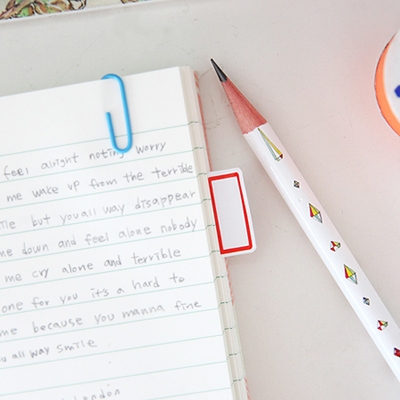 feel alright noting worry
me wake up from the terrible
ile but you all way disappear
me down and feel alone nobody
me cry alone and terrible
one for you it's a hard to
me because you manna fine
ou all way smile.
London